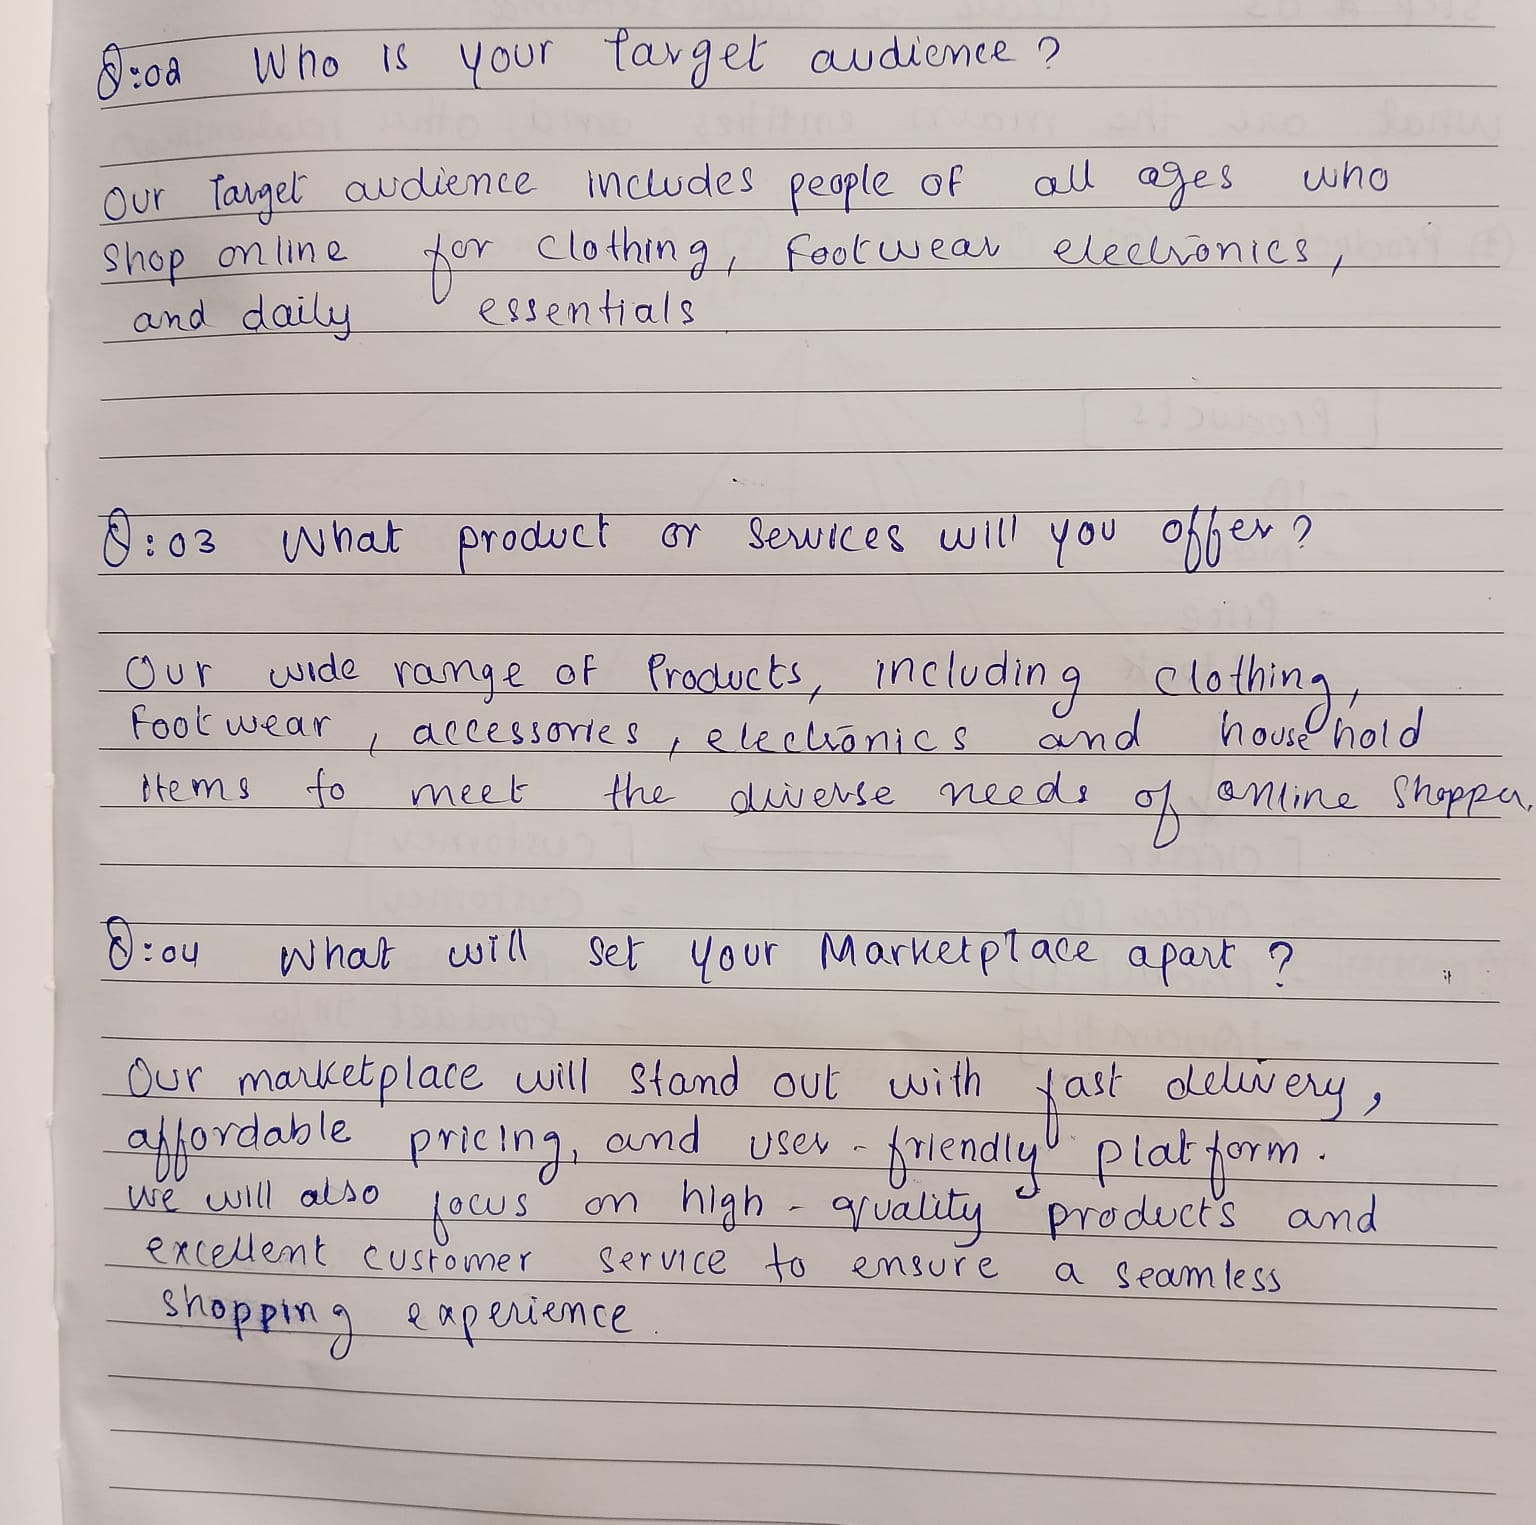 Q:02 Who is your Target audience?
Our Target audience includes people of all ages who
Shop online for Clothing, Footwear electronics,
and daily essentials
Q:03 What product or Services will you offer?
Our wide range of Products, including clothing,
Footwear, accessories, electronics and household
items to meet the diverse needs of online Shopper.
Q:04 What will set your Marketplace apart?
Our marketplace will stand out with fast delivery,
affordable pricing, and user-friendly platform.
We will also focus on high-quality products and
excellent customer service to ensure a seamless
shopping experience.